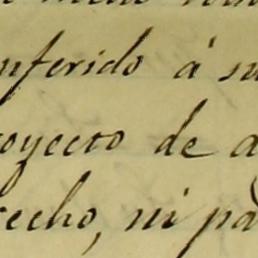 nferido á su
royecto de a
recho, ni pa